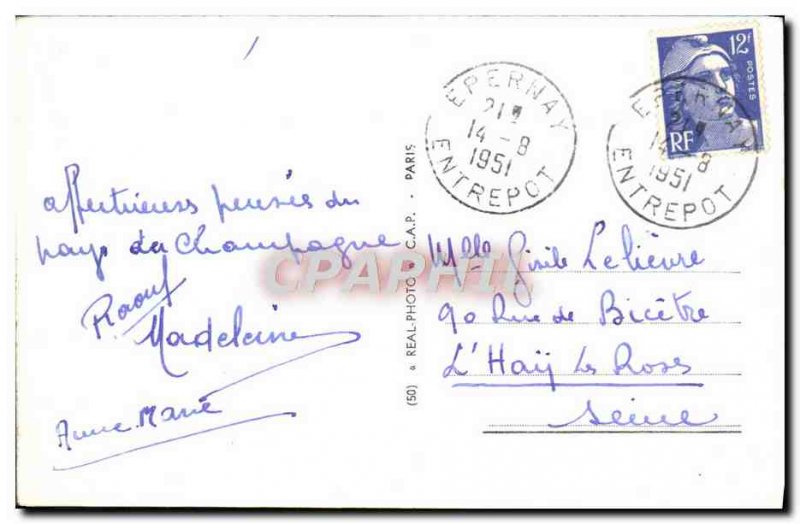 affectueuses pensées du
pays du Champagne
Raouf
Madeleine
Anne Marie
(50) REAL-PHOTO C.A.P. - PARIS
EPERNAY
21H
14-8
1951
ENTREPOT
12F
POSTES
RF
EPERNAY
21H
14-8
1951
ENTREPOT
Mlle Gisèle Lelièvre
90 Rue de Bicêtre
L'Haÿ les Roses
Seine
CPAPHIL